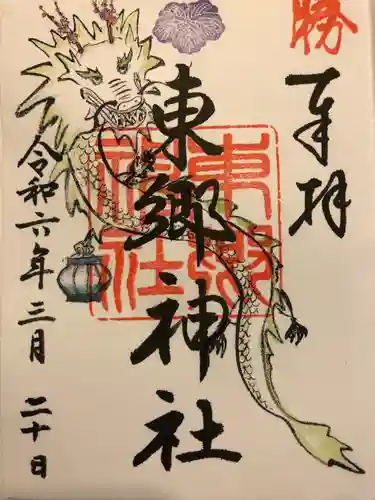 勝
奉拝
東郷神社
東郷
神社
令和六年三月二十日